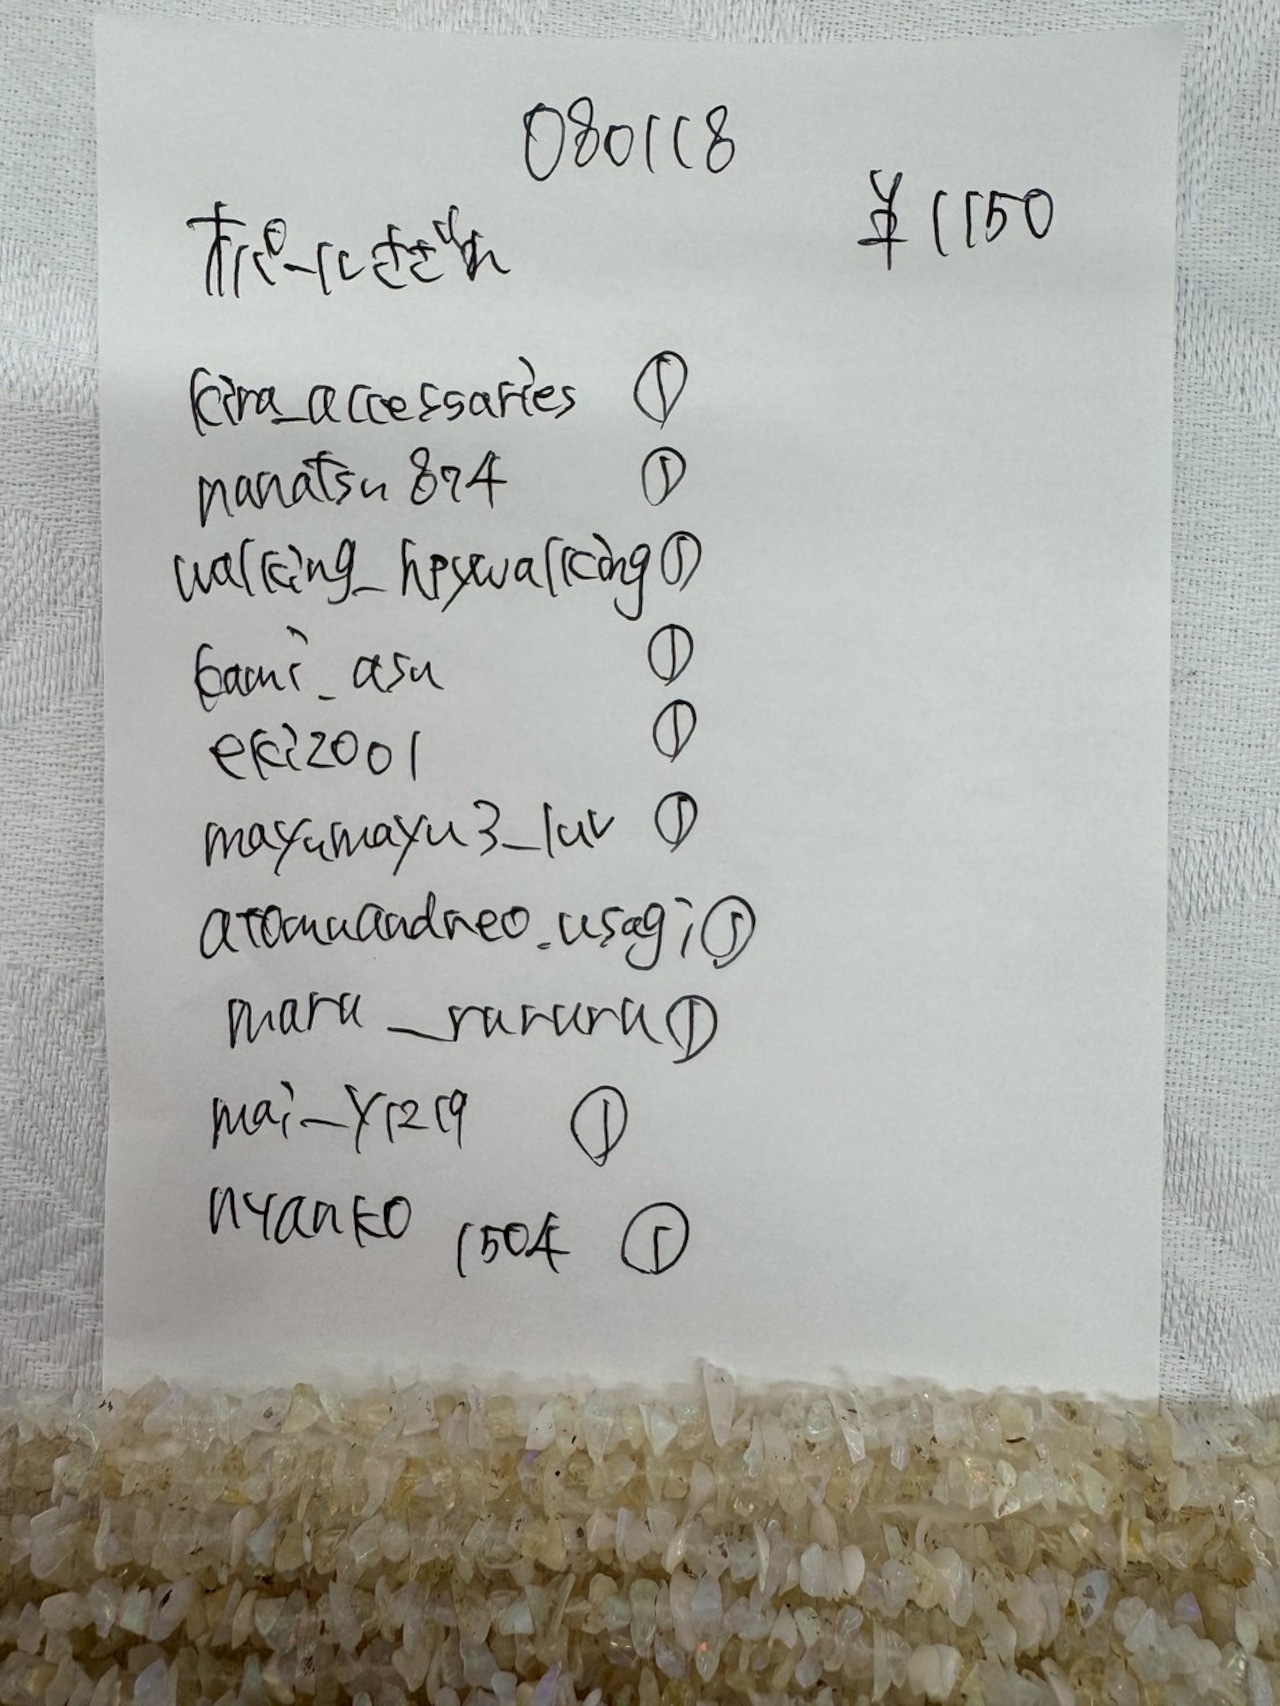 080118
オパールさざれ ¥1150
kira_accessaries ①
nanatsu874 ①
walking_hpywalking ①
kami_asu ①
eki2001 ①
mayumayu3_luv ①
atomuandneo.usagi ①
maru_rururu ①
mai_y1219 ①
nyanko1504 ①